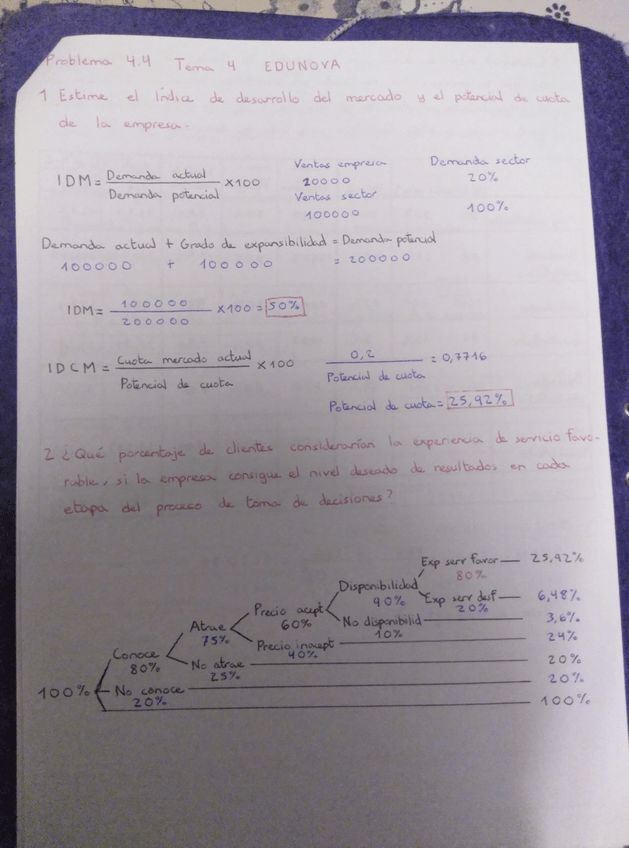 Problema 4.4 Tema 4 EDUNOVA
1 Estime el índice de desarrollo del mercado y el potencial de cuota
de la empresa.
IDM = Demanda actual / Demanda potencial x100
Ventas empresa
20000
Ventas sector
100000
Demanda sector
20%
100%
Demanda actual + Grado de expansibilidad = Demanda potencial
100000 + 100000 = 200000
IDM = 100000 / 200000 x100 = 50%
IDCM = Cuota mercado actual / Potencial de cuota x 100
0,2 / Potencial de cuota = 0,7716
Potencial de cuota = 25,92%
2 ¿Qué porcentaje de clientes considerarían la experiencia de servicio favo-
rable, si la empresa consigue el nivel deseado de resultados en cada
etapa del proceso de toma de decisiones?
Exp serv favor — 25,92%
80%
Disponibilidad
90%
Exp serv desf — 6,48%
20%
Precio acept
60%
No disponibilid — 3,6%
10%
Atrae
75%
Precio inacept — 24%
40%
Conoce
80%
No atrae — 20%
25%
100%
No conoce — 20%
20%
100%